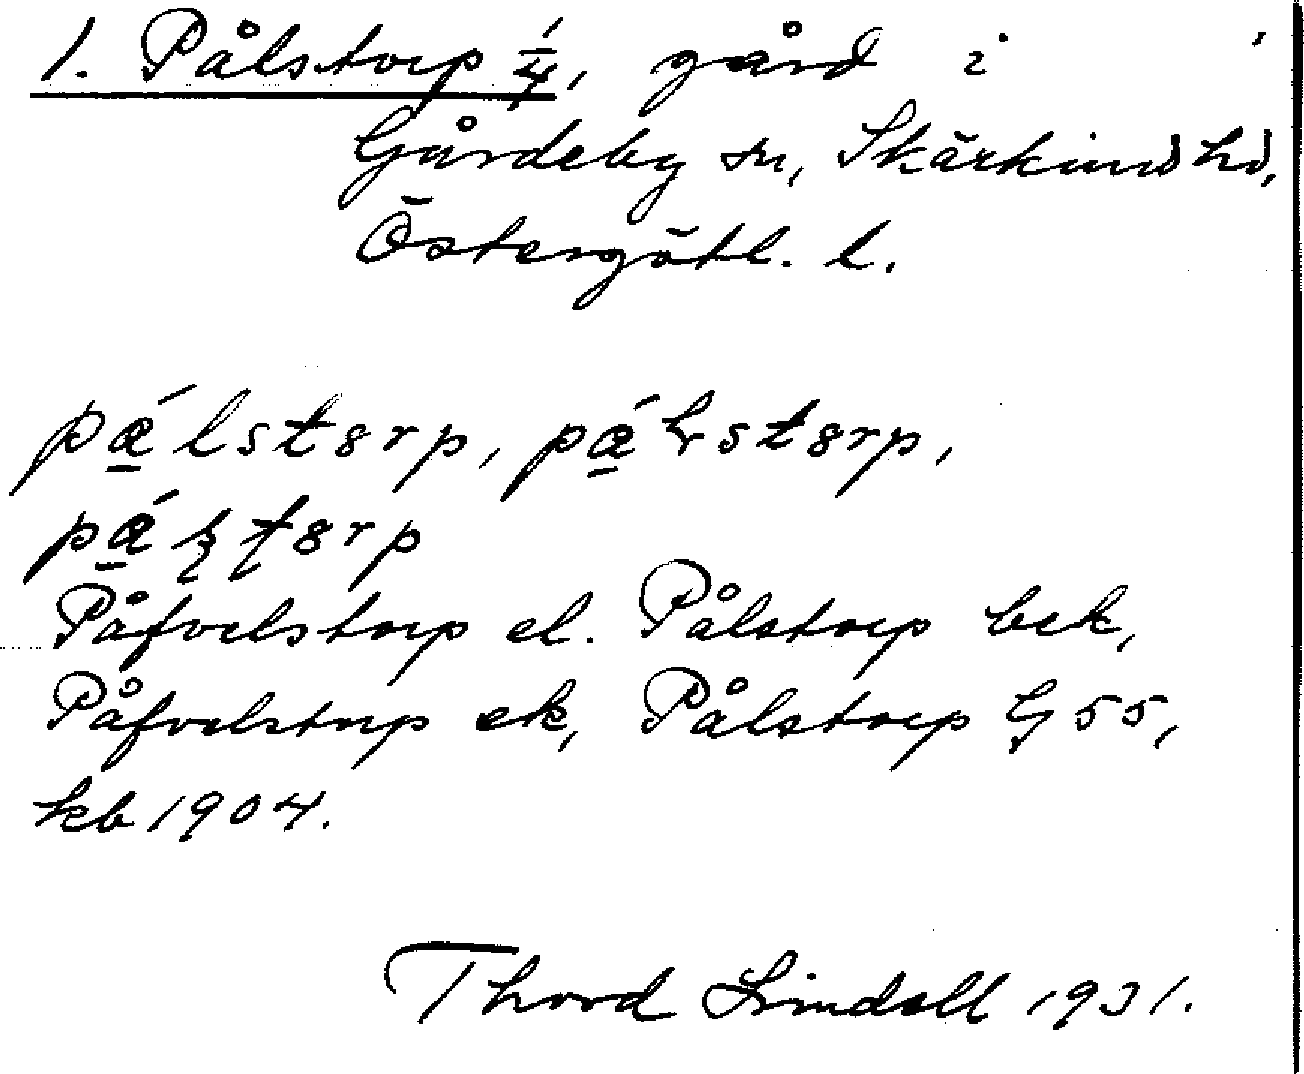 1. Pålstorp 1/4, gård i
Gårdeby sn, Skärkind hd,
Östergötl. l.
pá̱lstɵrp, pá̱ɽstɵrp,
pá̱ʂʈɵrp
Påfvelstorp el. Pålstorp bek,
Påfvelstorp ek, Pålstorp G 55,
kb 1904.
Thord Lindell 1931.